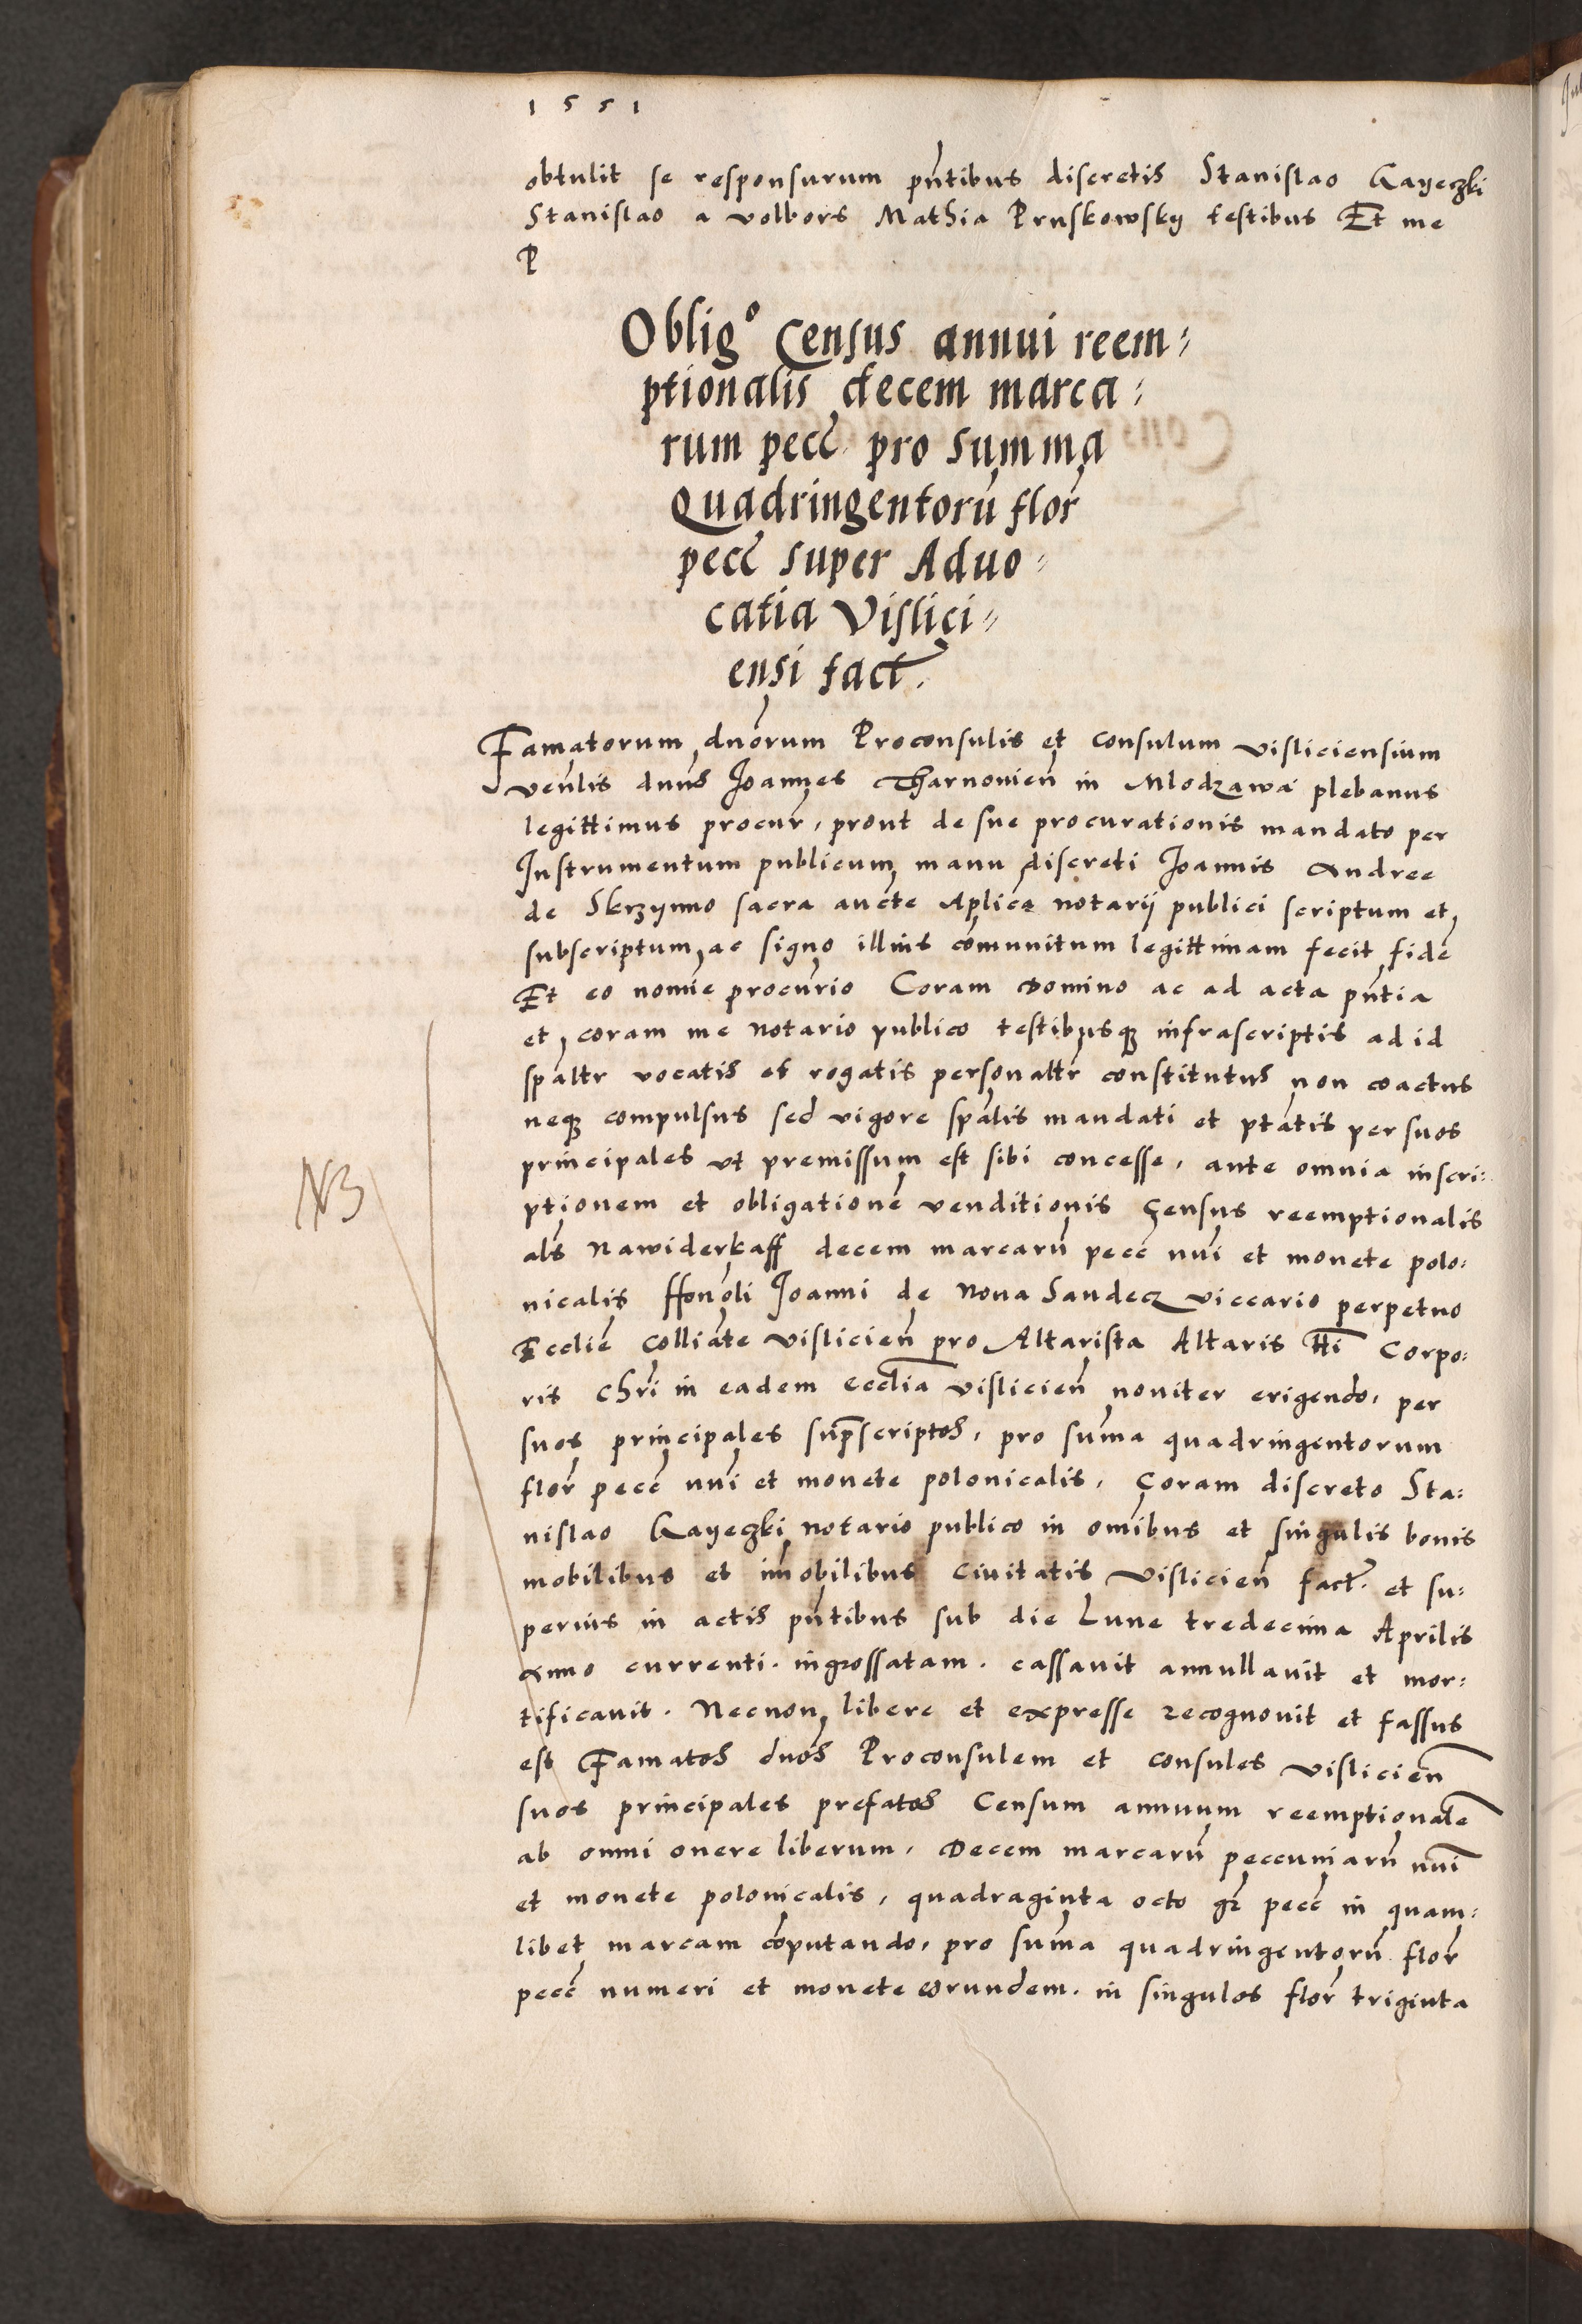 1551
obtulit se responsurum pñtibus discretis Stanislao Gayeczki
Stanislao a volbors Mathia Pruskowsky testibus Et me
P
Oblig° Census annui reem⸗
ptionalis decem marca⸗
rum pecc̃ pro summa
Quadringentorũ flor̃
pecc̃ super Aduo⸗
catia Vislici⸗
ensi fact.
Famatorum dnõrum Proconsulis et consulum visliciensium
veñlis dnũs Joannes Tharnovieñ in Mlodzawa plebanus
legittimus procur̃, prout de sue procurationis mandato per
Instrumentum publicum manu discreti Joannis Andree
de Skrzynno sacra aucte Aplica notarij publici scriptum et
subscriptum ac signo illius cõmunitum legittimam fecit fidẽ
Et eo nomĩe procur̃io Coram domino ac ad acta pñtia
et coram me notario publico testibusq infrascriptis ad id
spãltr vocatis et rogatis personaltr̃ constitutus non coactus
neq compulsus sed vigore spãlis mandati et ptãtis per suos
principales ut premissum est sibi concesse, ante omnia inscri⸗
ptionem et obligationẽ venditionis Census reemptionalis
als Nawiderkaff decem marcarũ pecc̃ nũi et monete polo⸗
nicalis Honõli Joanni de Nova Sandecz viccario perpetuo
Ecclie Colliãte vislicieñ pro Altarista Altaris tti Corpo⸗
ris Chri in eadem ecclia vislicieñ noviter erigendo, per
suos principales suprascriptos, pro suma quadringentorum
flor̃ pecc̃ nũi et monete polonicalis, Coram discreto Sta⸗
nislao Gayeczki notario publico in omĩbus et singulis bonis
mobilibus et imobilibus Civitatis Vislicieñ fact. et su⸗
perius in actis pñtibus sub die Lune tredecima Aprilis
Anno currenti. ingrossatam. cassavit annullavit et mor⸗
tificavit. Necnon libere et expresse recognovit et fassus
est Famatos dnõs Proconsulem et consules vislicieñ
suos principales prefatos Censum annuum reemptionalẽ
ab omni onere liberum, Decem marcarũ peccuniarũ nũi
et monete polonicalis, quadraginta octo gr̃ pecc̃ in quam⸗
libet marcam cõputando, pro suma quadringentorũ flor̃
pecc̃ numeri et monete eorundem. in singulos flor̃ triginta
NB